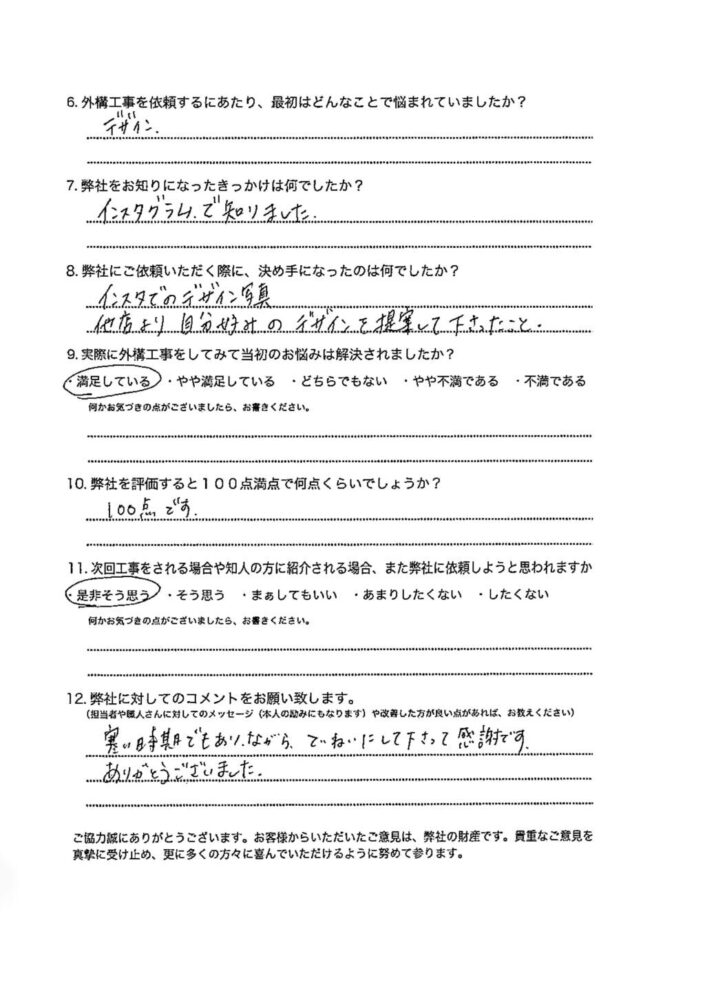 6. 外構工事を依頼するにあたり、最初はどんなことで悩まれていましたか？
デザイン.
7. 弊社をお知りになったきっかけは何でしたか？
インスタグラム.で知りました.
8. 弊社にご依頼いただく際に、決め手になったのは何でしたか？
インスタでのデザイン写真
他店より自分好みのデザインを提案して下さったこと.
9. 実際に外構工事をしてみて当初のお悩みは解決されましたか？
・満足している ・やや満足している ・どちらでもない ・やや不満である ・不満である
何かお気づきの点がございましたら、お書きください。
10. 弊社を評価すると１００点満点で何点くらいでしょうか？
100点です.
11. 次回工事をされる場合や知人の方に紹介される場合、また弊社に依頼しようと思われますか
・是非そう思う ・そう思う ・まぁしてもいい ・あまりしたくない ・したくない
何かお気づきの点がございましたら、お書きください。
12. 弊社に対してのコメントをお願い致します。
（担当者や職人さんに対してのメッセージ（本人の励みにもなります）や改善した方が良い点があれば、お教えください）
寒い時期でもありながら、ていねいにして下さって感謝です.
ありがとうございました.
ご協力誠にありがとうございます。お客様からいただいたご意見は、弊社の財産です。貴重なご意見を
真摯に受け止め、更に多くの方々に喜んでいただけるように努めて参ります。